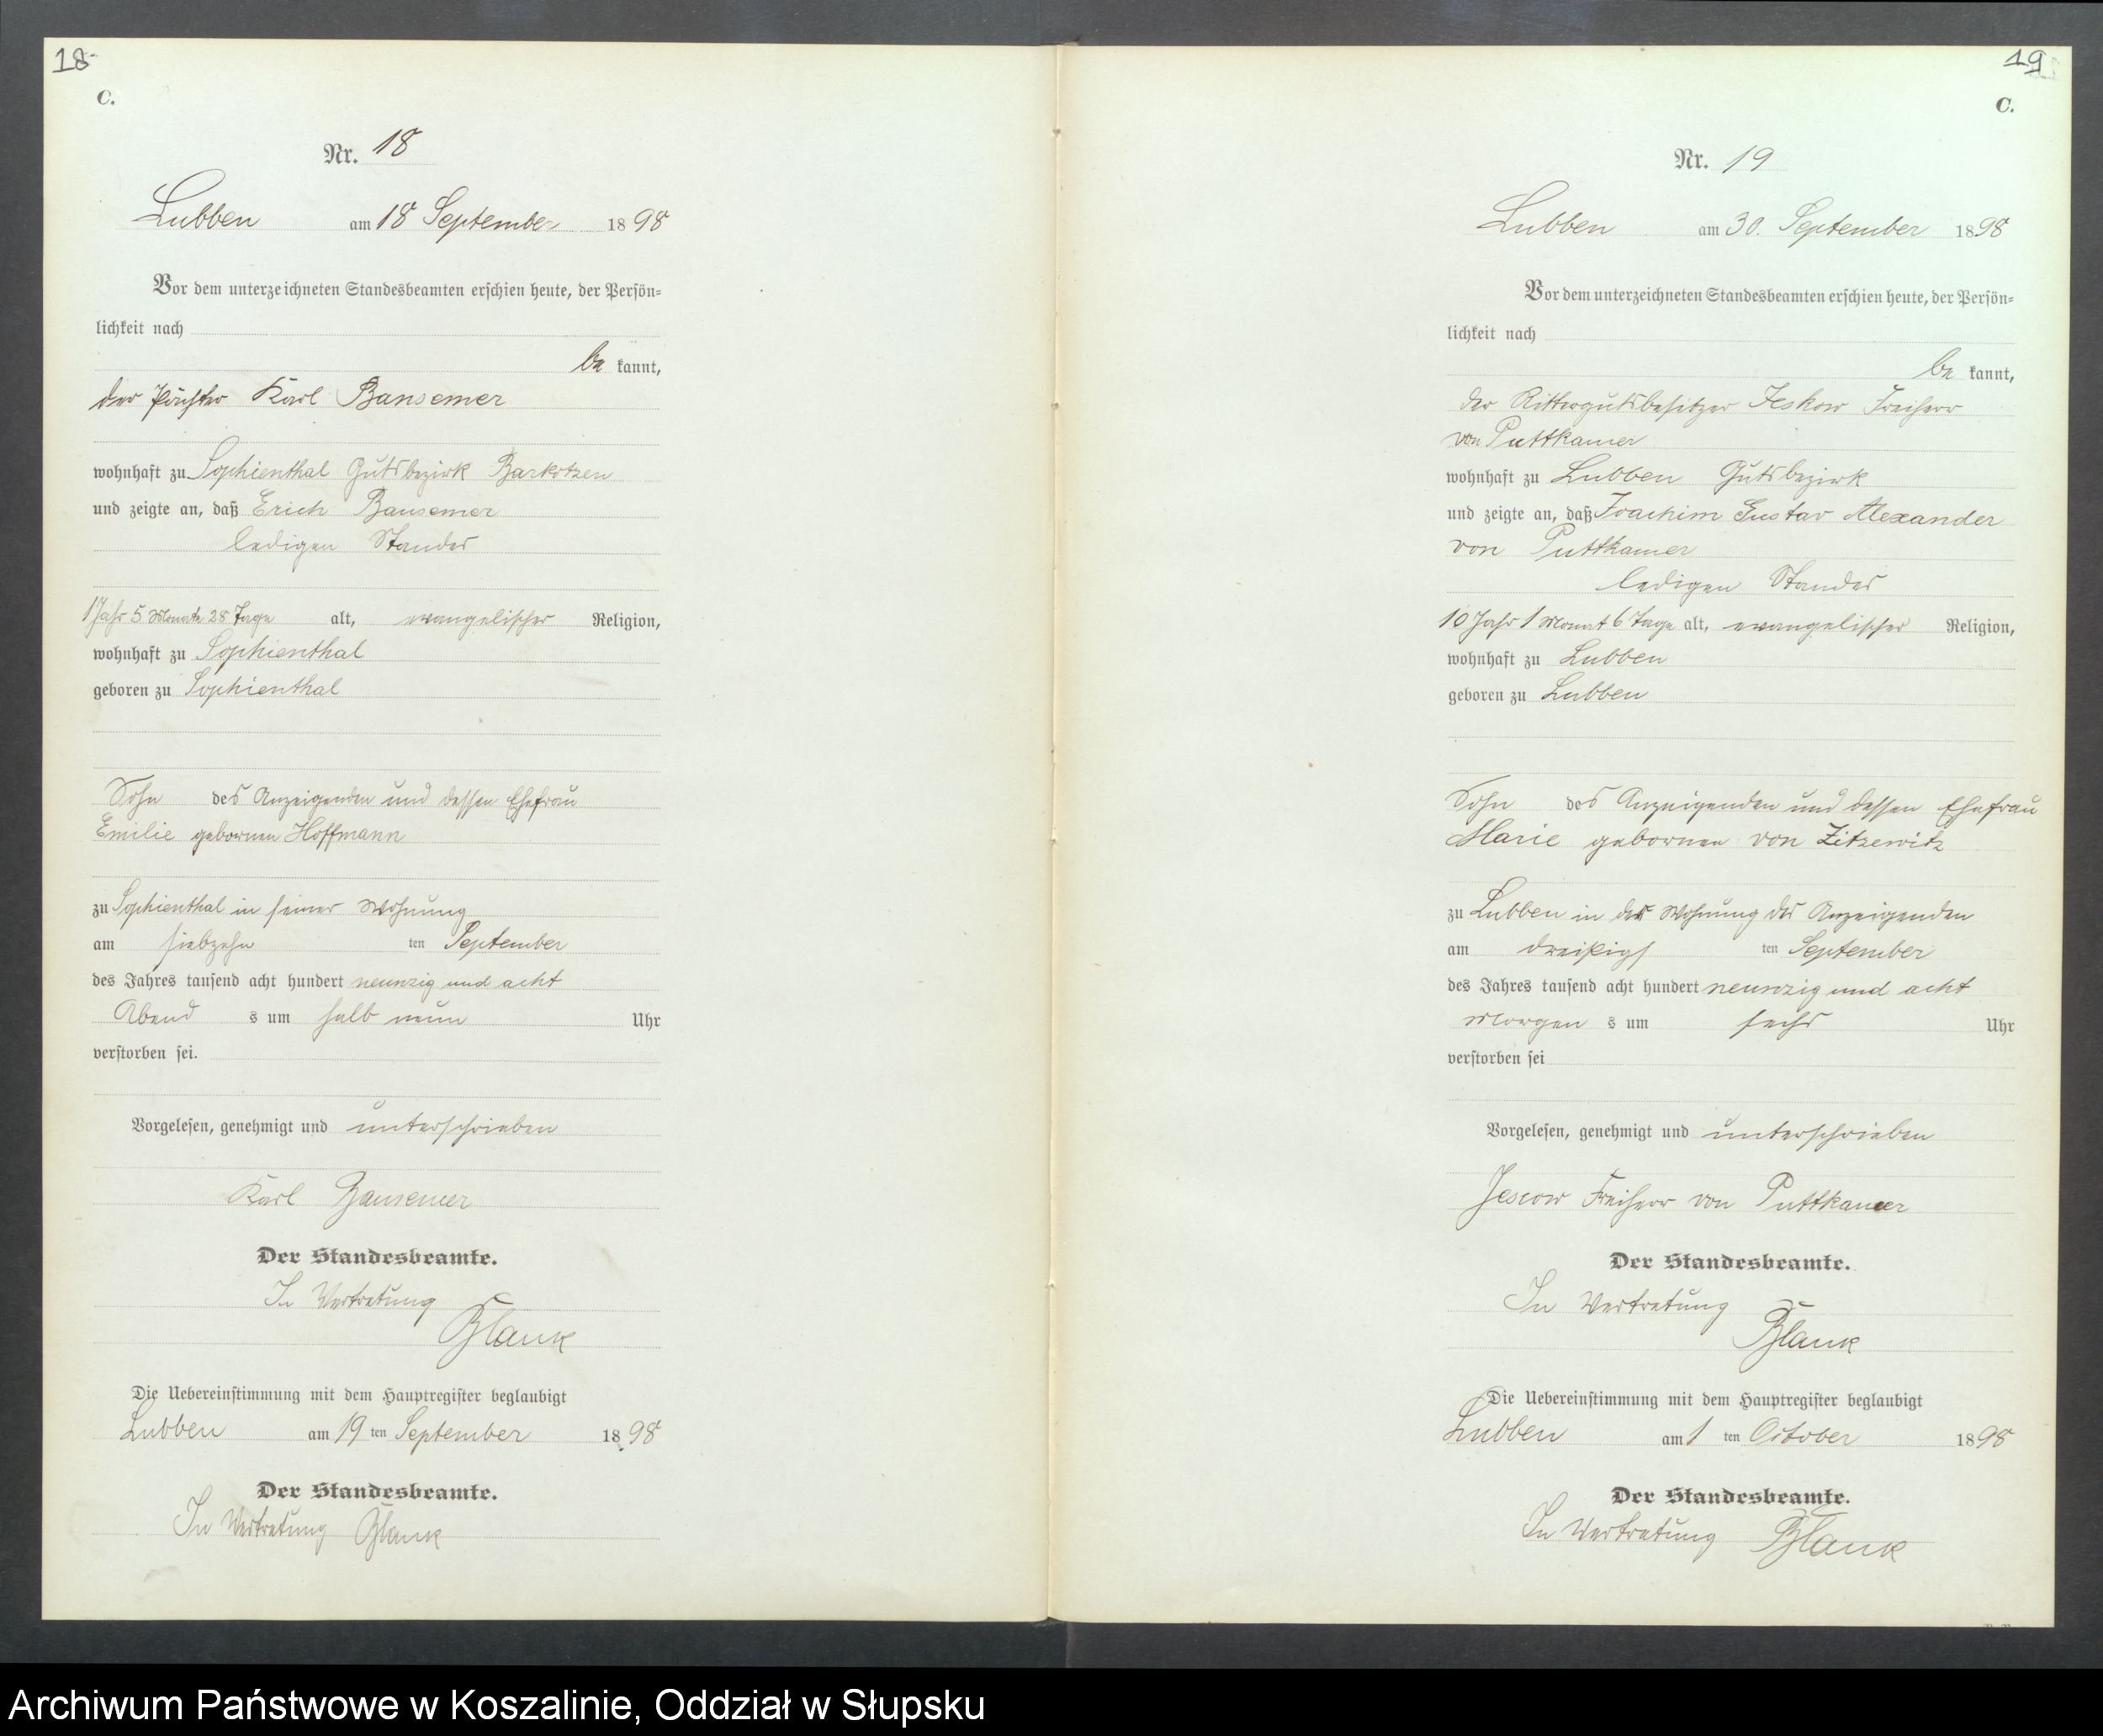 18
C.
Nr. 18
Lubben am 18 September 1898
Vor dem unterzeichneten Standesbeamten erschien heute, der Persön-
lichkeit nach
be kannt,
der Pächter Karl Bansemer
wohnhaft zu Sophienthal Gutsbezirk Barkotzen
und zeigte an, daß Erich Bansemer
ledigen Standes
1 Jahr 5 Monate 28 Tage alt, evangelischer Religion,
wohnhaft zu Sophienthal
geboren zu Sophienthal
Sohn des Anzeigenden und dessen Ehefrau
Emilie gebornen Hoffmann
zu Sophienthal in seiner Wohnung
am siebzehn ten September
des Jahres tausend acht hundert neunzig und acht
Abend s um halb neun Uhr
verstorben sei.
Vorgelesen, genehmigt und unterschrieben
Karl Bansemer
Der Standesbeamte.
In Vertretung
Blank
Die Uebereinstimmung mit dem Hauptregister beglaubigt
Lubben am 19 ten September 1898
Der Standesbeamte.
In Vertretung Blank
19
C.
Nr. 19
Lubben am 30. September 1898
Vor dem unterzeichneten Standesbeamten erschien heute, der Persön-
lichkeit nach
be kannt,
der Rittergutsbesitzer Jeskow Freiherr
von Puttkamer
wohnhaft zu Lubben Gutsbezirk
und zeigte an, daß Joachim Gustav Alexander
von Puttkamer
ledigen Standes
10 Jahr 1 Monat 6 Tage alt, evangelischer Religion,
wohnhaft zu Lubben
geboren zu Lubben
Sohn des Anzeigenden und dessen Ehefrau
Marie gebornen von Zitzewitz
zu Lubben in der Wohnung des Anzeigenden
am dreißigs ten September
des Jahres tausend acht hundert neunzig und acht
Morgen s um sechs Uhr
verstorben sei
Vorgelesen, genehmigt und unterschrieben
Jescow Freiherr von Puttkamer
Der Standesbeamte.
In Vertretung
Blank
Die Uebereinstimmung mit dem Hauptregister beglaubigt
Lubben am 1 ten October 1898
Der Standesbeamte.
In Vertretung Blank
Archiwum Państwowe w Koszalinie, Oddział w Słupsku